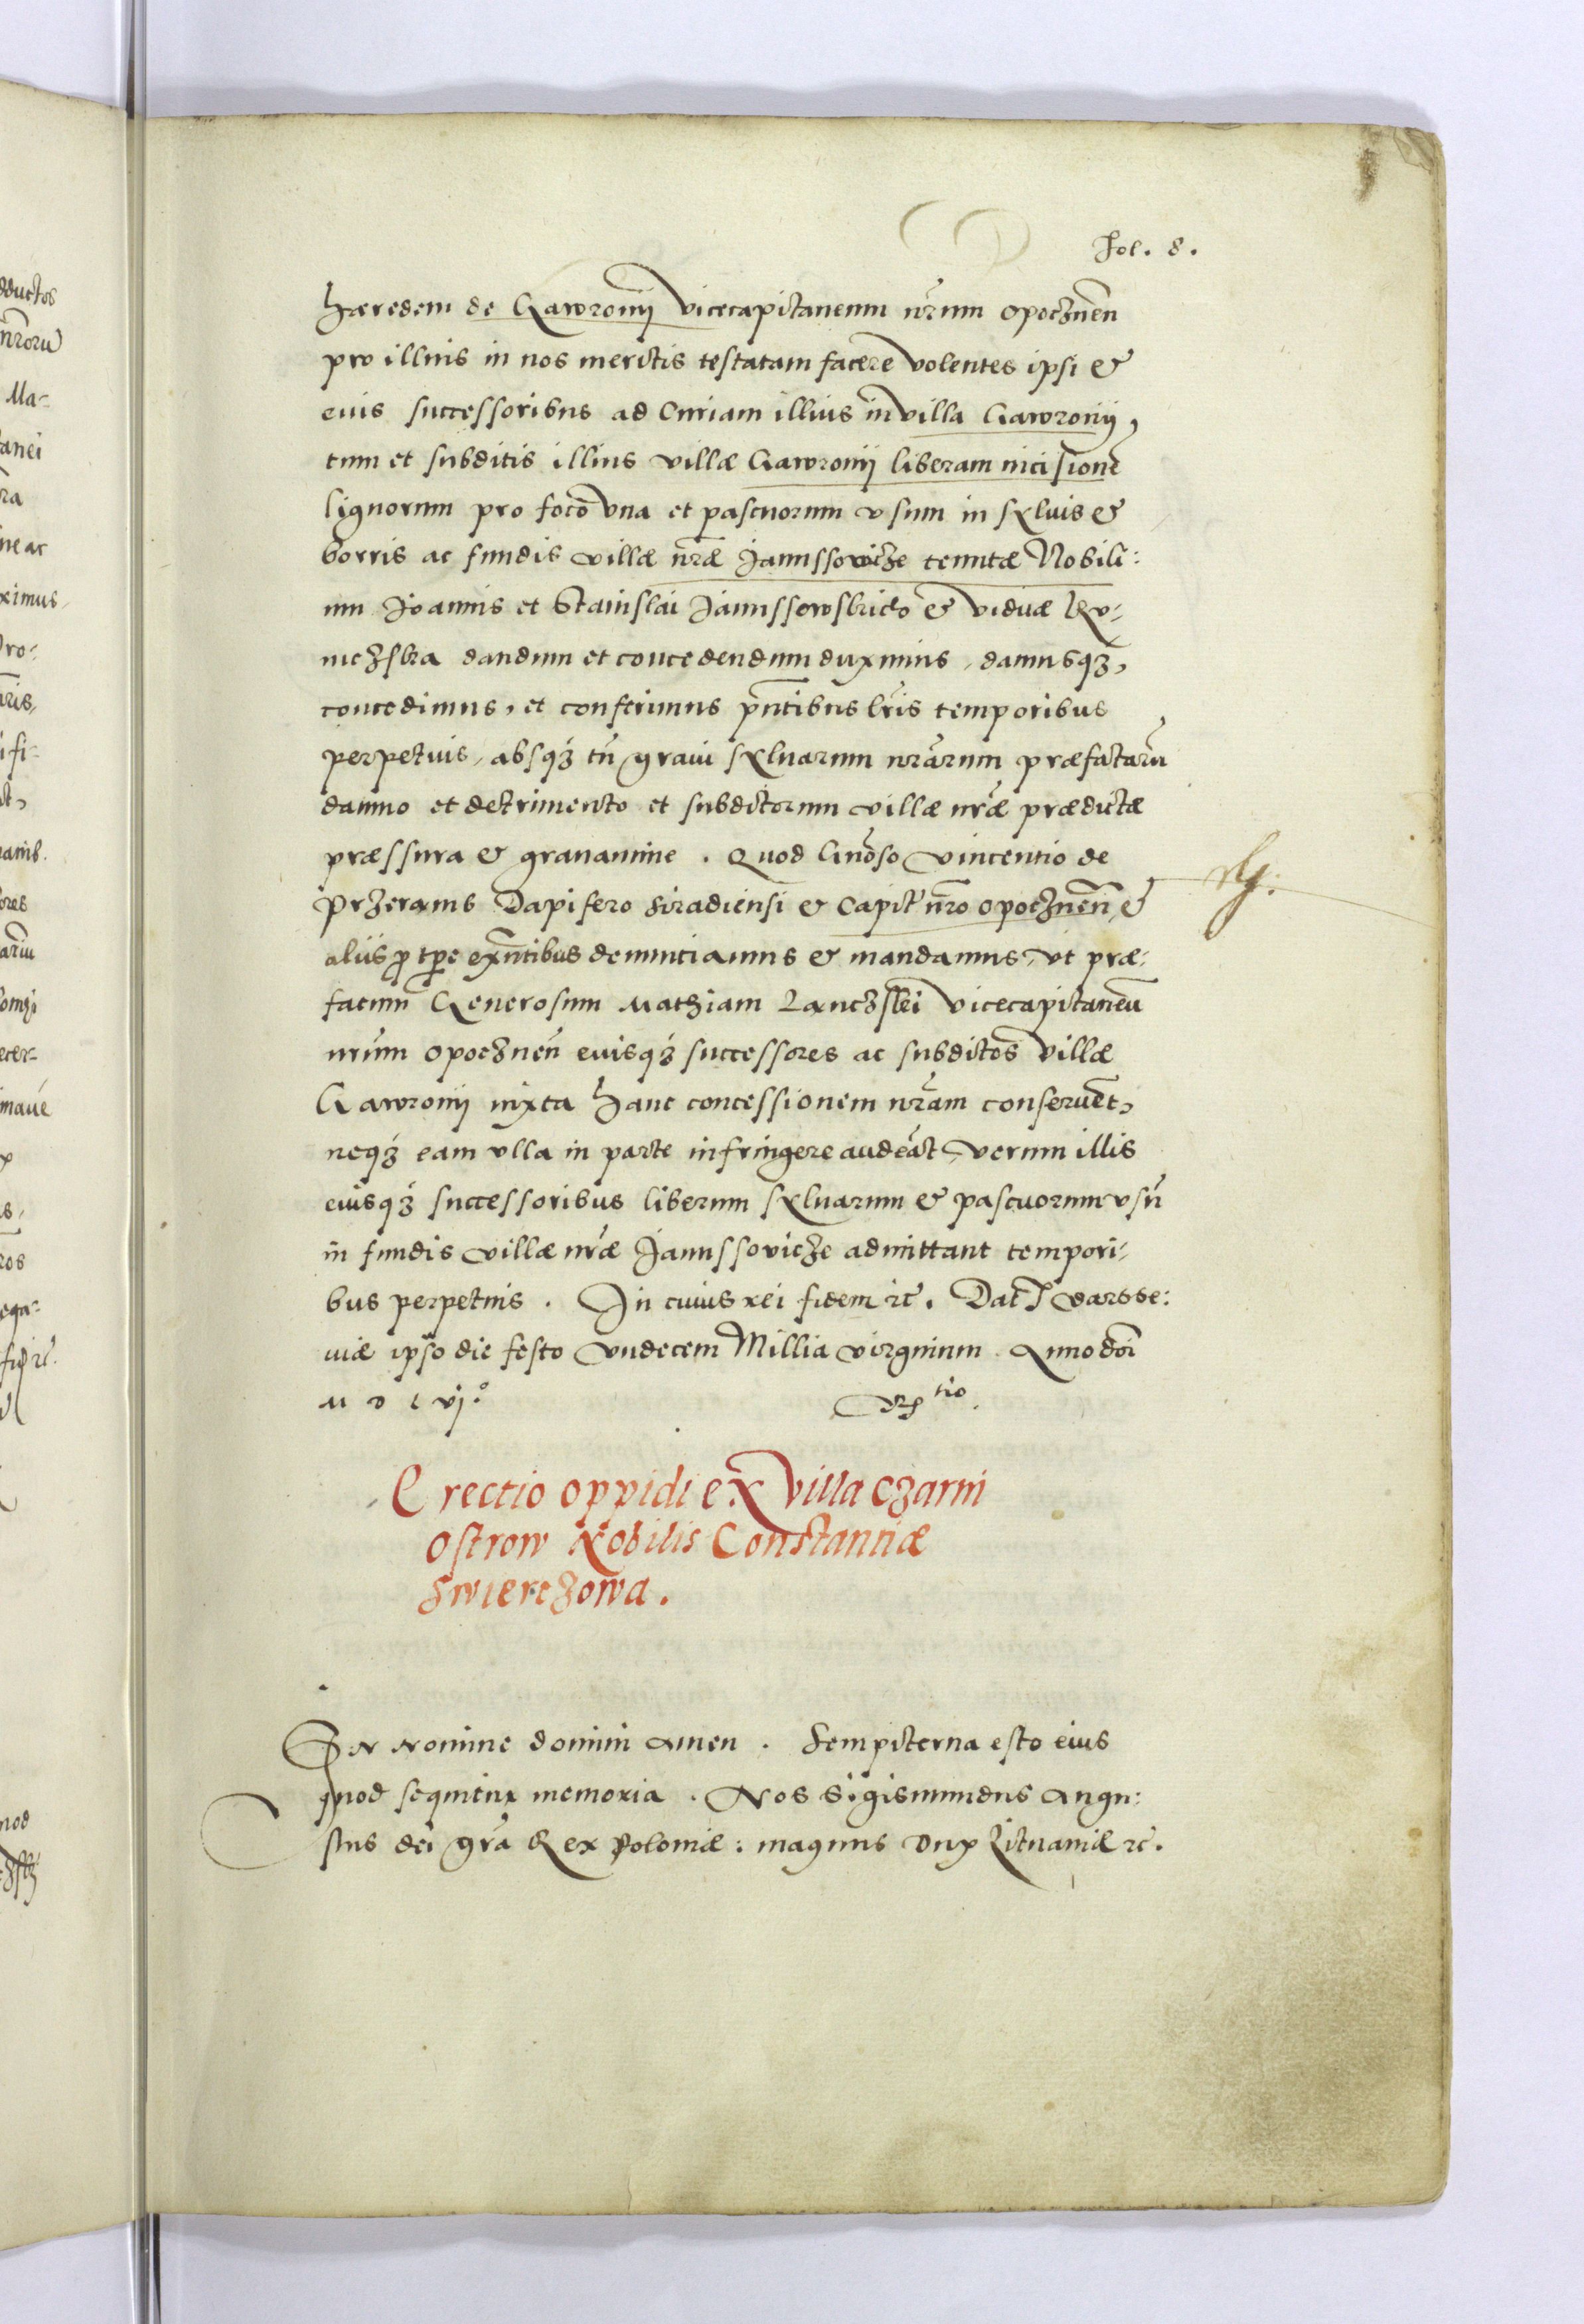 Fol. 8.
hæredem de Gawronij vicecapitaneum nr̃um opoczneñ
pro illius in nos meritis testatam facere volentes ipsi et
euis successoribus ad Curiam illius in villa Gawronij,
tum et subditis illius villæ Gawronij liberam incisionẽ
lignorum pro foco vna et pascuorum vsum in sylvis et
borris ac fundis villæ nr̃æ Janussowicze tentæ Nobili:
um Joannis et Stanislai Janussowskich et viduæ Ry-
niczska dandum et concedendum duximus, damusq3,
concedimus, et conferimus pñtibus lr̃is temporibus
perpetuis, absq3 tñ graui syluarum nr̃arum præfatarũ
damno et detrimento et subditorum villæ nr̃æ prædictæ
præssura et grauamine. Quod Gnõso vincentio de
przerams Dapifero siradiensi et Capit nr̃o opocznen̄ et
aliis p̱ tp̱e exñtibus denunciamus et mandamus, vt præ:
fatum Generosum Mathiam Lanczski vicecapitaneũ
nr̃um opoczneñ euisq3 successores ac subditos villæ
Gawronij iuxta hanc concessionem nr̃am conseruẽt,
neq3 eam vlla in parte infringere audeãt, verum illis
eiusq3 successoribus liberum syluarum et pascuorum vsũ
in fundis villæ nr̃æ Janussovicze admittant tempori,
bus perpetuis. In cuius rei fidem ꝛc̃. Dat̃ varsse:
uiæ ipso die festo vndecem Millia virginum. Anno dñi
M D L vj.º
Erectio oppidi ex villa Czarni
Ostrow Nobilis Constantiæ
Swierczowa.
IN Nomine domini Amen. Sempiterna esto eius
quod sequitur memoria. Nos Sigismundus Augu:
stus dei gr̃a Rex Poloniæ: magnus Dux Lituaniæ ꝛc̃.